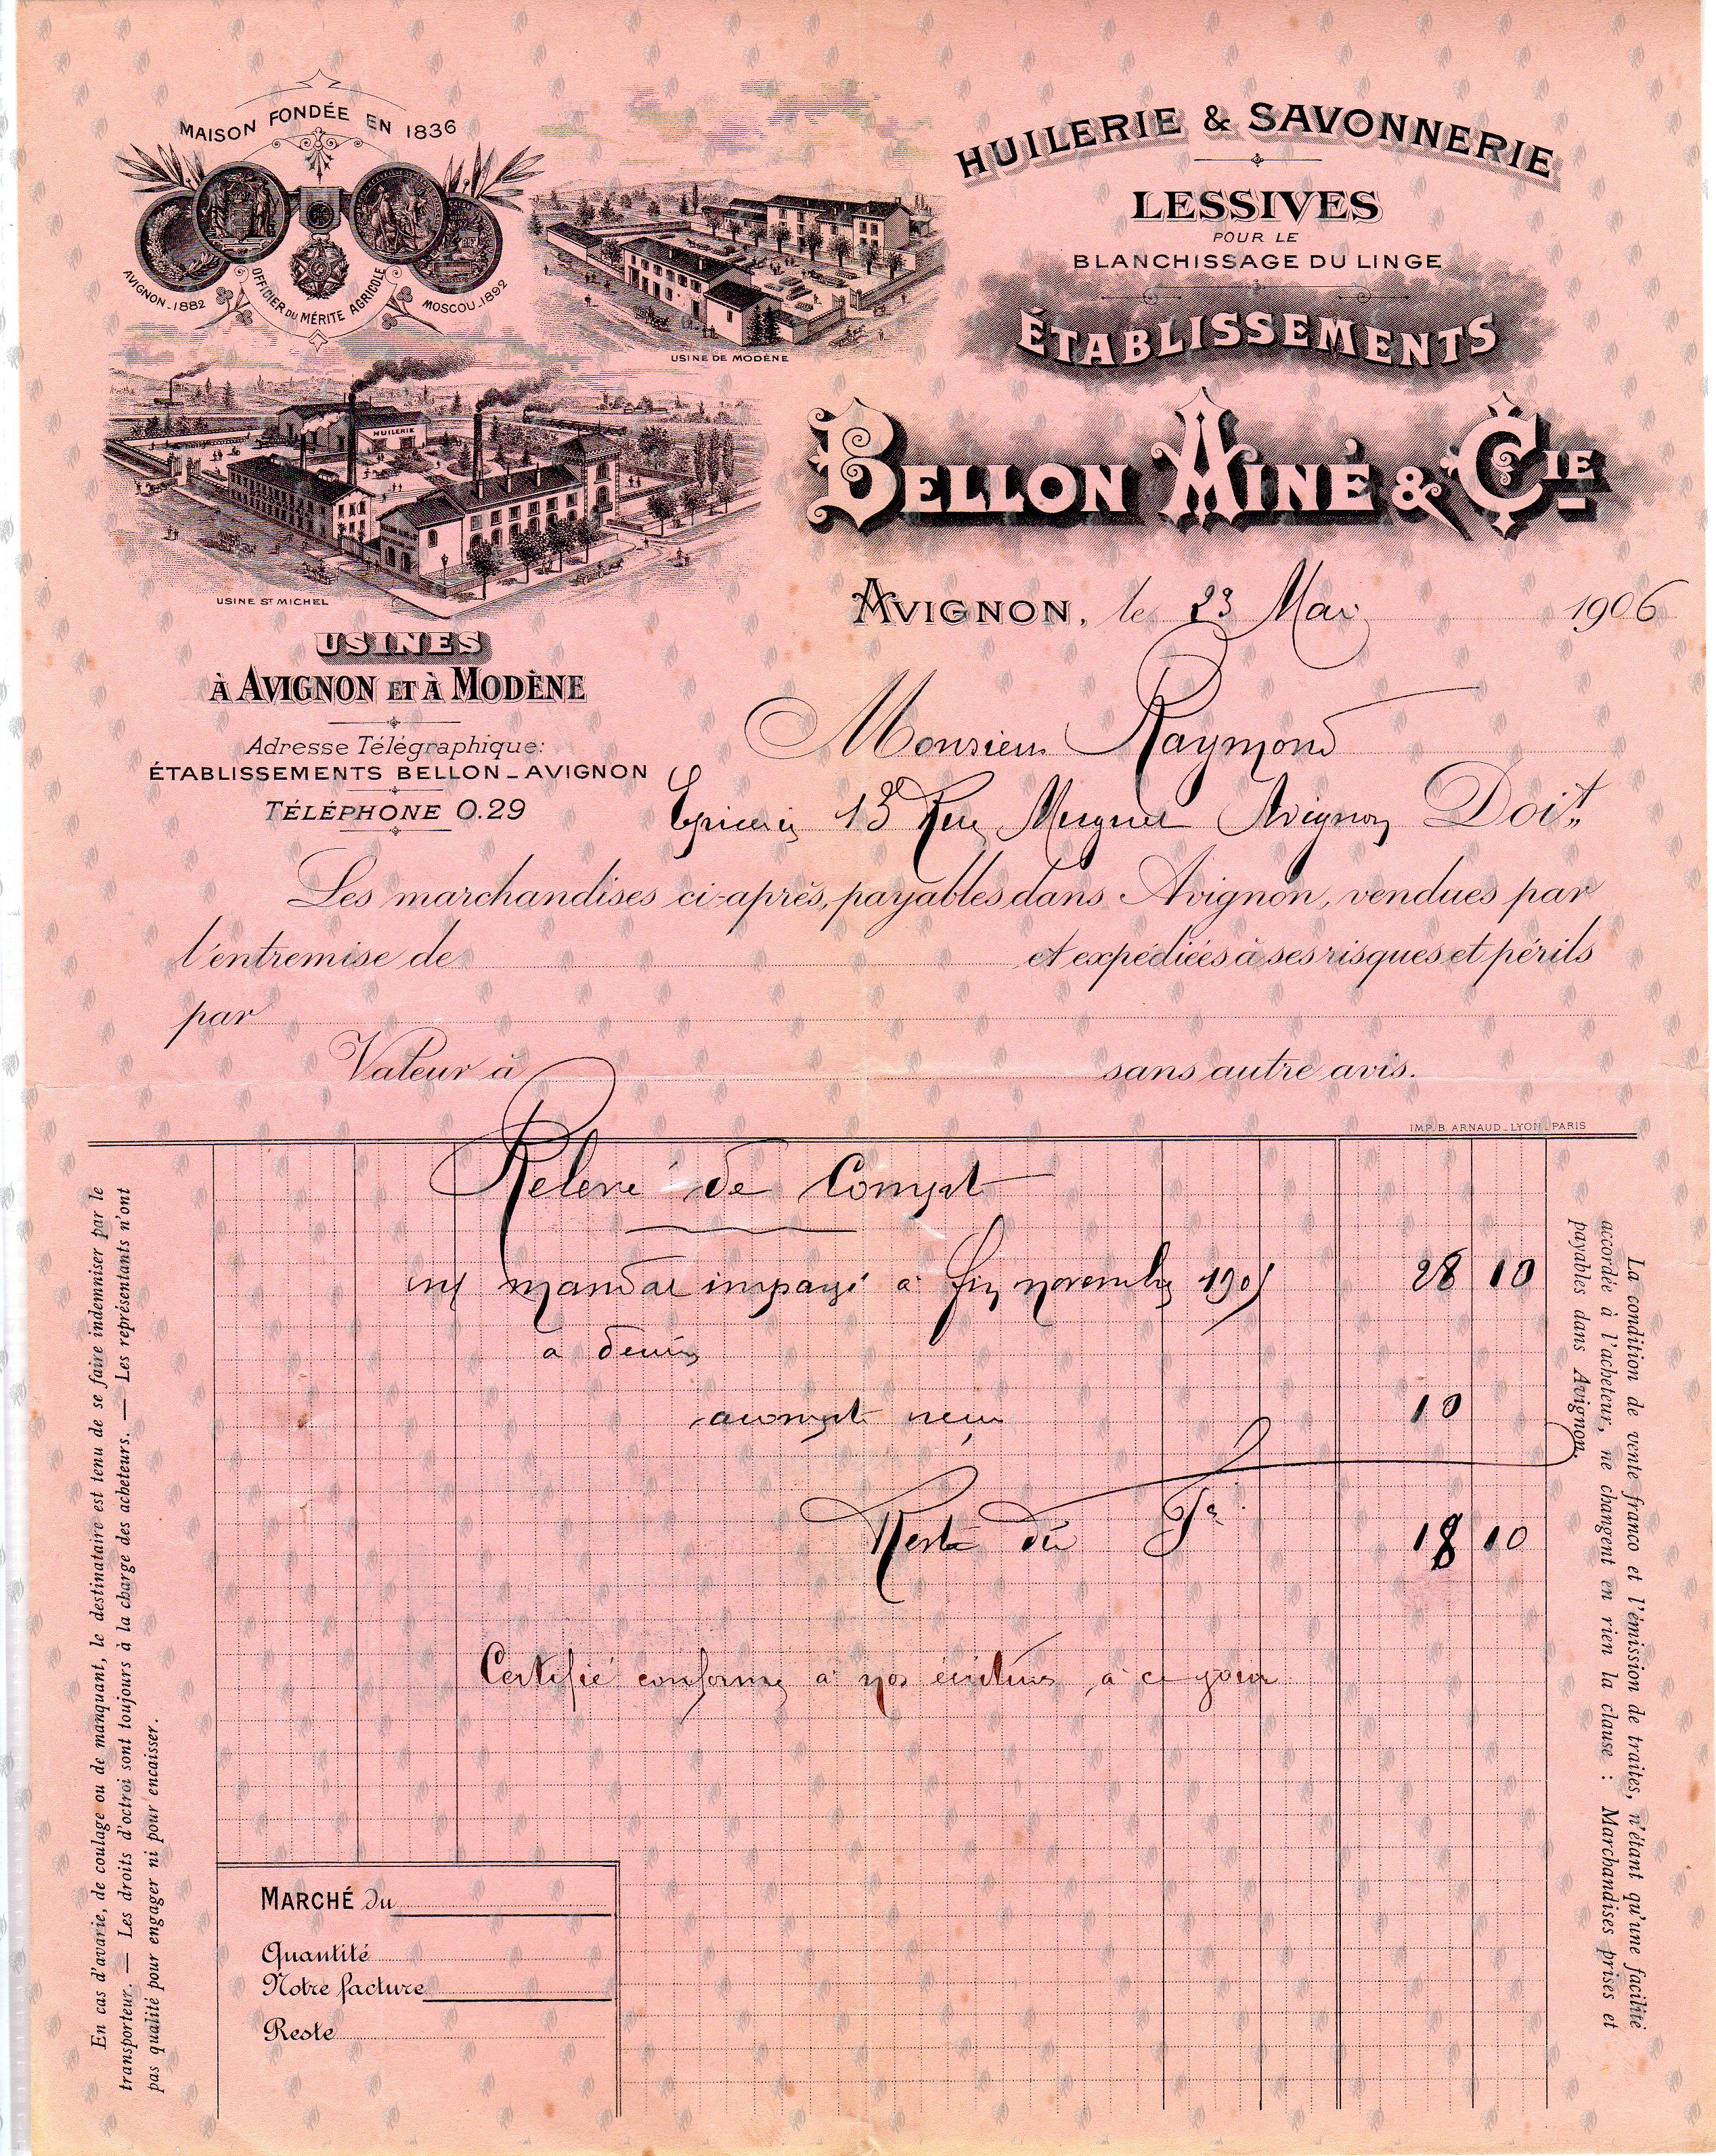 MAISON FONDÉE EN 1836
AVIGNON_1882
OFFICIER DU MÉRITE AGRICOLE
MOSCOU_1892
USINE DE MODÈNE
HUILERIE
USINE ST MICHEL
USINES
À AVIGNON ET À MODÈNE
Adresse Télégraphique:
ÉTABLISSEMENTS BELLON_AVIGNON
TÉLÉPHONE 0.29
HUILERIE & SAVONNERIE
LESSIVES
POUR LE
BLANCHISSAGE DU LINGE
ÉTABLISSEMENTS
BELLON AINÉ & CIE
AVIGNON, le 23 Mai 1906
Monsieur Raymond
Epicerie 13 Rue Avignon Doit
Les marchandises ci-après, payables dans Avignon, vendues par
l'entremise de et expédiées à ses risques et périls
par
Valeur à sans autre avis.
IMP. B. ARNAUD_LYON_PARIS
Relevé de Compte
n/ mandat impayé à fin novembre 1905 28 10
a
acompte reçu 10
Reste dû Fr 18 10
Certifié conforme à nos écritures à ce jour
MARCHÉ du
Quantité
Notre facture
Reste
En cas d'avarie, de coulage ou de manquant, le destinataire est tenu de se faire indemniser par le
transporteur. — Les droits d'octroi sont toujours à la charge des acheteurs. — Les représentants n'ont
pas qualité pour engager ni pour encaisser.
La condition de vente franco et l'émission de traites, n'étant qu'une facilité
accordée à l'acheteur, ne changent en rien la clause : Marchandises prises et
payables dans Avignon.